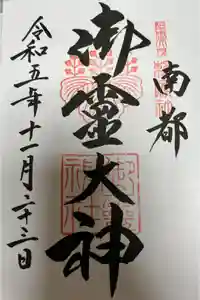 南都
御霊大神
令和五年十一月二十三日